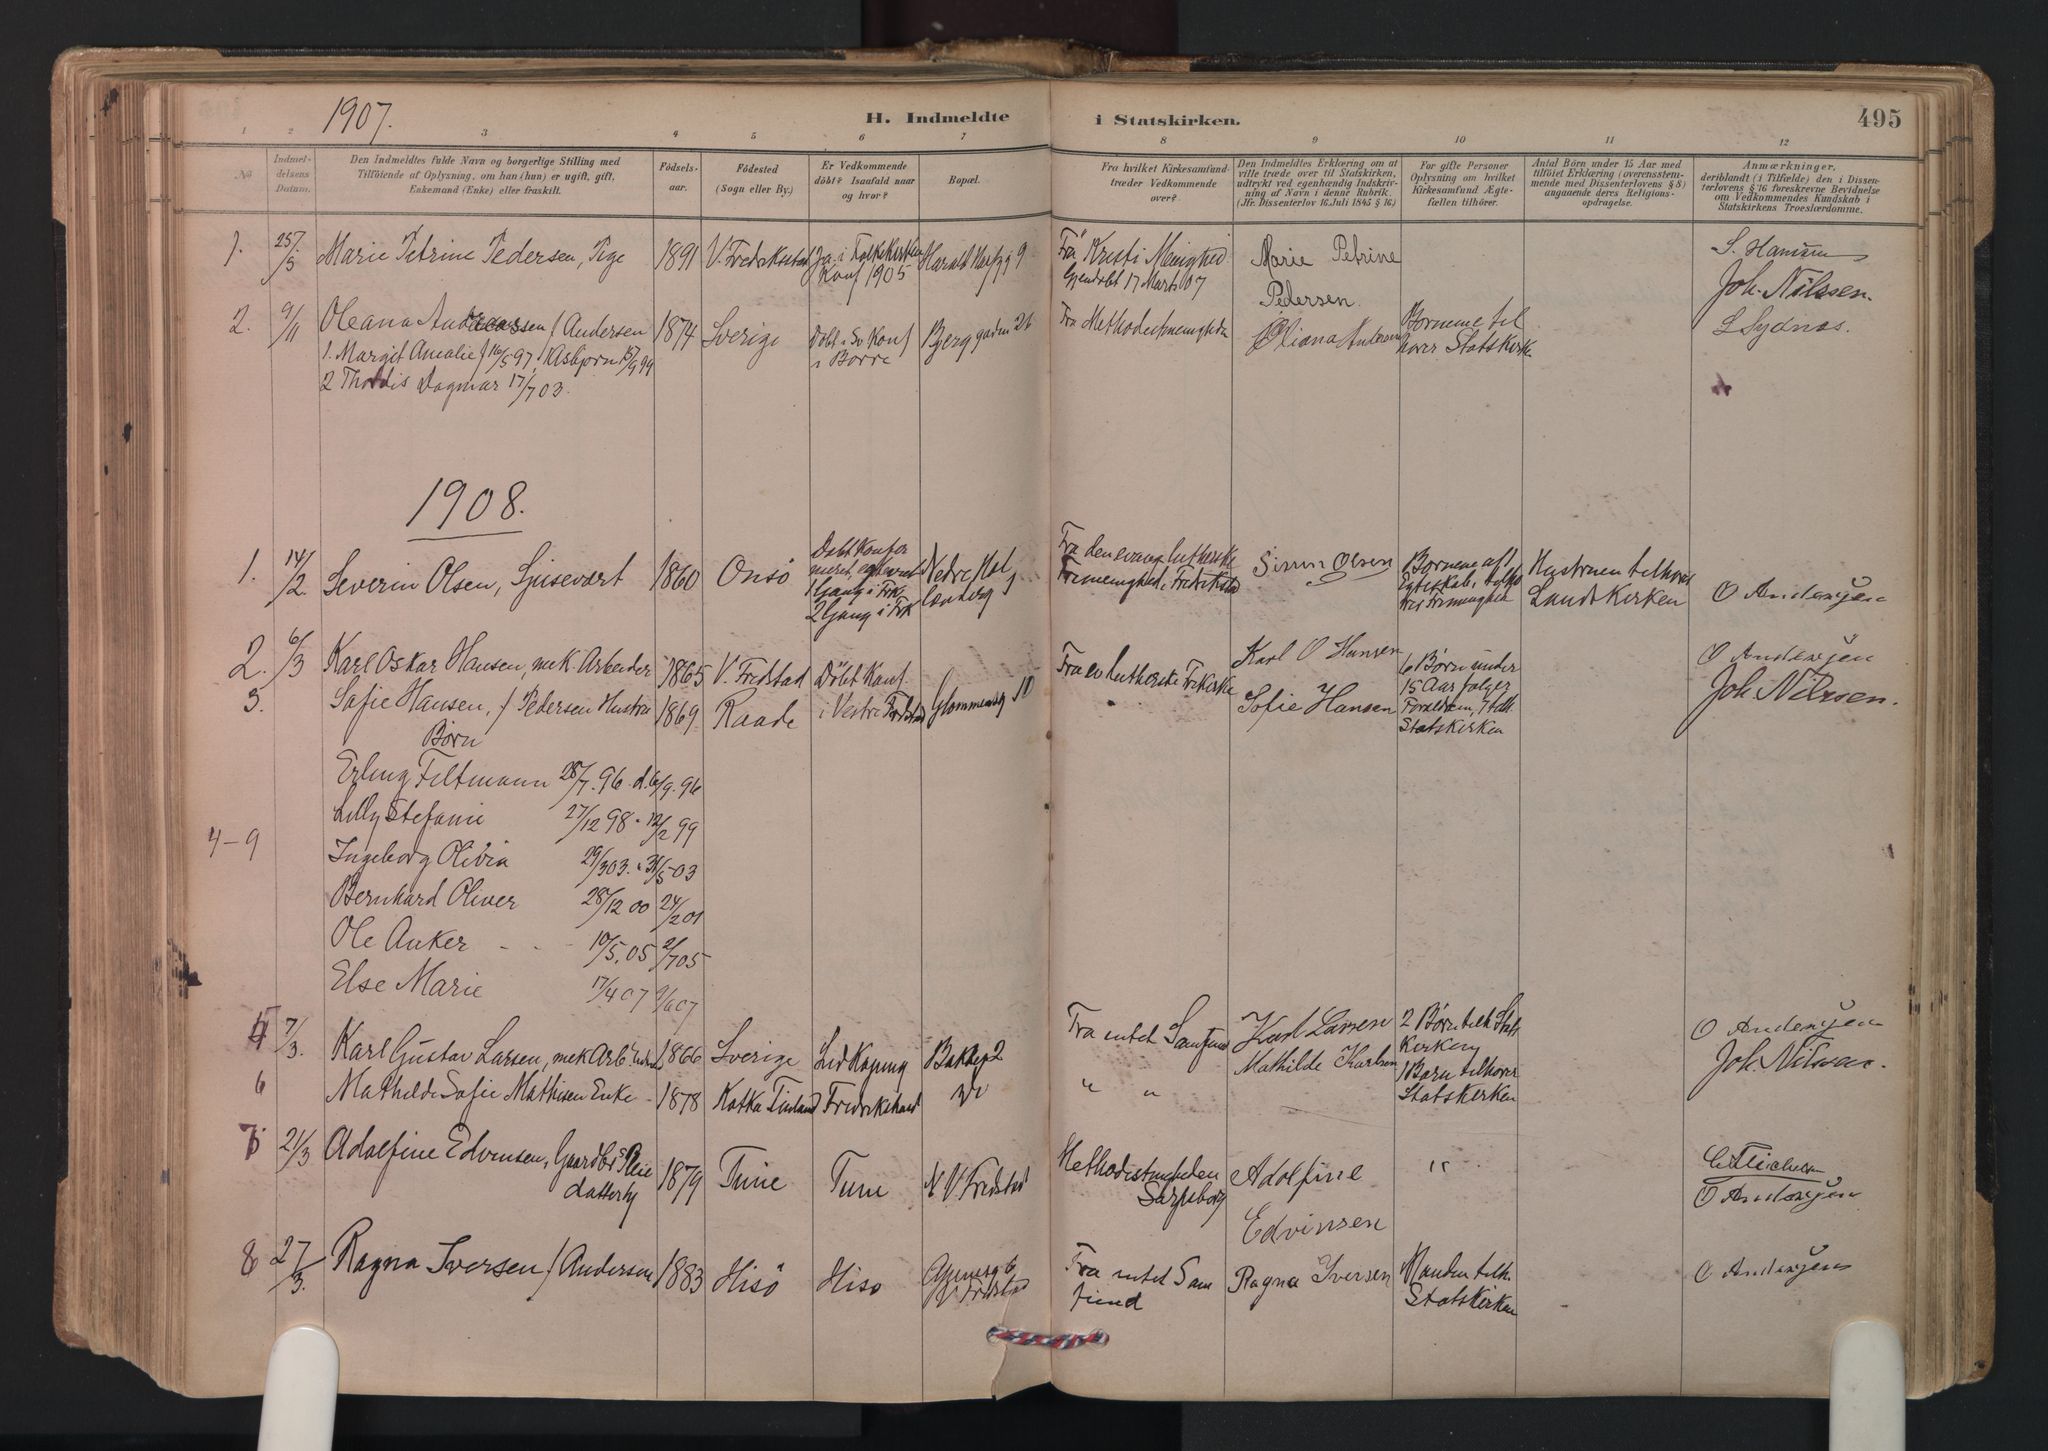 1907.
H. Indmeldte i Statskirken.
495
1 2 3 4 5 6 7 8 9 10 11 12
No
Indmel-
delsens
Datum.
Den Indmeldtes fulde Navn og borgerlige Stilling med
Tilføiende af Oplysning, om han (hun) er ugift, gift,
Enkemand (Enke) eller fraskilt.
Fødsels-
aar.
Fødested
(Sogn eller By.)
Er Vedkommende
döbt? Isaafald naar
og hvor?
Bopæl.
Fra hvilket Kirkesamfund
træder Vedkommende
over?
Den Indmeldtes Erklæring om at
ville træde over til Statskirken,
udtrykt ved egenhændig Indskriv-
ning af Navn i denne Rubrik.
(Jfr. Dissenterlov 16 Juli 1845 § 16.)
For gifte Personer
Oplysning om hvilket
Kirkesamfund Ægte-
fællen tilhörer.
Antal Börn under 15 Aar med
tilföiet Erklæring (overensstem-
mende med Dissenterlovens § 8)
angaaende deres Religions-
opdragelse.
Anmærkninger,
deriblandt (i Tilfælde) den i Dissen-
terlovens § 16 foreskrevne Bevidnelse
om Vedkommendes Kundskab i
Statskirkens Troeslærdomme.
1. 25/5 Marie Petrine Pedersen, Pige 1891 V. Fredrikstad Ja i Folkekirken
Konf 1905 Harald 9 Fra Kristi Menighed
Gjendøbt 17 Marts 07 Marie Petrine
Pedersen. S. Hansen
Joh. Nilssen.
2. 9/11 Oleana / Andersen 1874 Sverige Døbt i Sv Konf
i Borre Berggaden 26 Fra Methodistmenigheden Oliana Andersen Børnene til
hører Statskirke L Sydnæs.
1. Margit Amalie 16/5 97, Asbjørn 15/9 99
2 Thordis Dagmar 17/7 03.
1908.
1. 14/2. Severin Olsen, 1860 Onsö Døbt Konfir
meret,
1 Gang i Frk
2 Gang i Frk Nedre Fra den evang lutherske
Frimenighed, Fredrikstad Olsen Børnene af 1
Egteskab, tilhø
rer Frimenighed Hustruen tilhører
Landskirken O
2. 6/3 Karl Oskar Hansen, mek. Arbeider 1865 V. Fredstad Døbt Konf
i Vestre Fredstad Glommensg 10 Fra ev lutherske Frikirke Karl O Hansen 6 Børn under
15 Aar følger
Forældrene, i
Statskirken O
Joh. Nilssen.
3. Sofie Hansen, / Pedersen Hustru 1869 Raade Sofie Hansen
Børn
Erling Feltmann 28/7. 96. d. 6/9. 96
Lilly Stefanie 27/12 98 " 12/2 99
4-9 Ingeborg Olivia 29/3 03. " 31/5 03
Bernhard Oliver 28/12 00 24/2 01
Ole Anker - - 10/5. 05 2/7 05
Else Marie 17/4 07 9/6 07
7/3. Karl Gustav Larsen, mek Arb 1866 Sverige Lidkøping Bakkeg 2 Fra intet Samfund Karl Larsen 2 Børn tilh Stats
Kirken O
Joh. Nilssen.
6 Mathilde Sofie Mathisen Enke - 1878 Kotka Finland Fredrikshavn " " Mathilde Karlsen 1 Barn tilhører
Statskirken
7 21/3 Adolfine Edvinsen, Gaardbr
datter 1879 Tune Tune V. Fredstad Methodistmenigheden
Sarpsborg Adolfine
Edvinsen " O
8 27/3. Ragna Iversen / Andersen 1883 Hisö Hisö Fredstad Fra intet Sam
fund Ragna Iversen Manden tilh.
Statskirken O